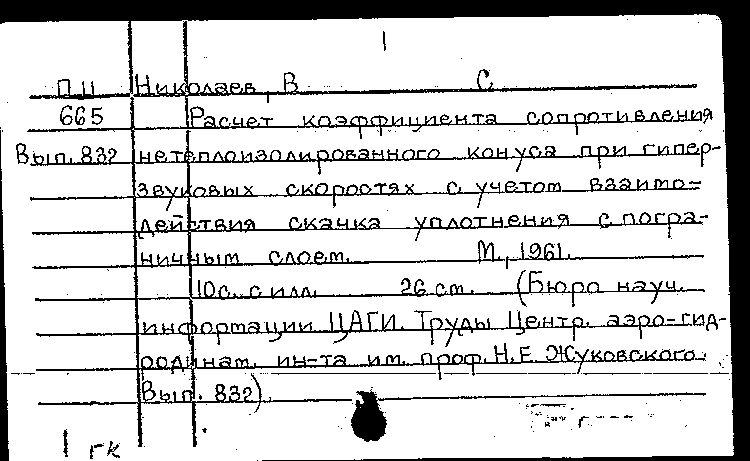 1
П 11 Николаев, В С.
665 Расчет коэффициента сопротивления
Вып. 832 нетеплоизолированного конуса при гипер-
звуковых скоростях с учетом взаимо-
действия скачка уплотнения с погра-
ничным слоем. М., 1961.
10 с. с илл. 26 см. (Бюро науч.
информации ЦАГИ. Труды Центр. аэро-гид-
родинам. ин-та им. проф. Н.Е. Жуковского.
Вып. 832).
1 гк